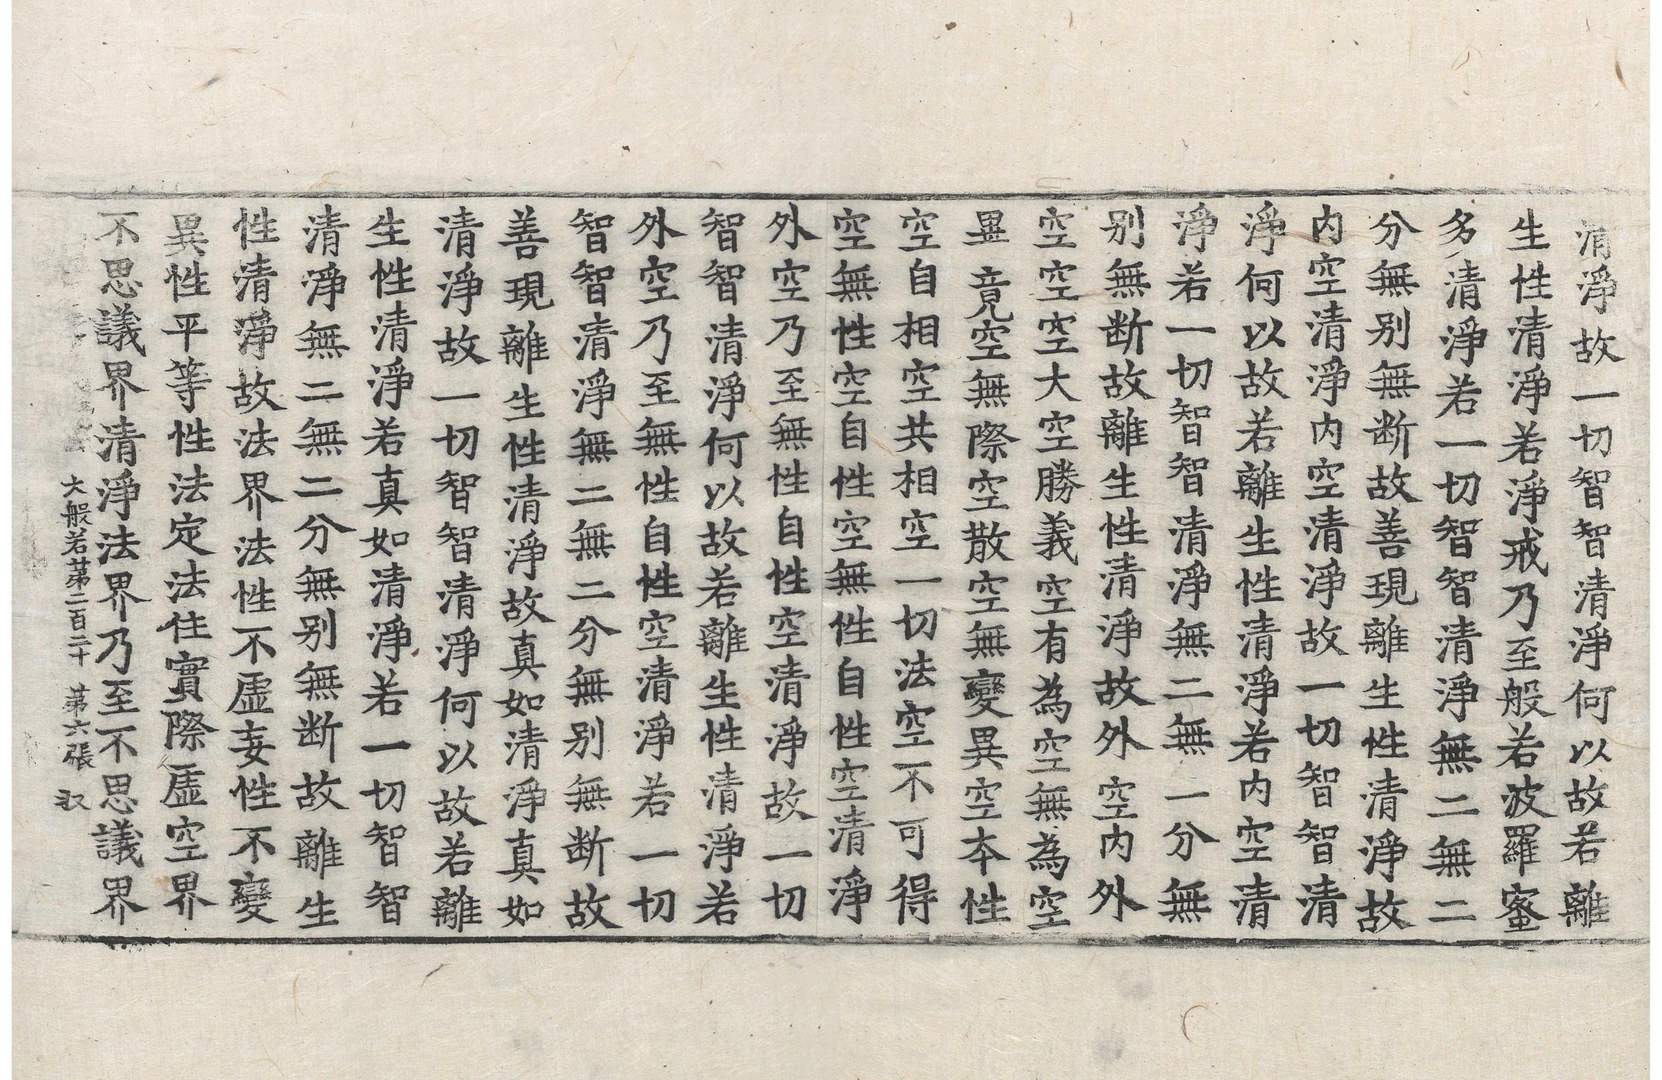 清淨故一切智智清淨何以故若離
生性清淨若淨戒乃至般若波羅蜜
多清淨若一切智智清淨無二無二
分無别無断故善現離生性清淨故
内空清淨内空清淨故一切智智清
淨何以故若離生性清淨若内空清
淨若一切智智清淨無二無二分無
别無断故離生性清淨故外空内外
空空空大空勝義空有為空無為空
畢竟空無際空散空無變異空本性
空自相空共相空一切法空不可得
空無性空自性空無性自性空清淨
外空乃至無性自性空清淨故一切
智智清淨何以故若離生性清淨若
外空乃至無性自性空清淨若一切
智智清淨無二無二分無别無断故
善現離生性清淨故真如清淨真如
清淨故一切智智清淨何以故若離
生性清淨若真如清淨若一切智智
清淨無二無二分無别無断故離生
性清淨故法界法性不虛妄性不變
異性平等性法定法住實際虛空界
不思議界清淨法界乃至不思議界
大般若第二百二十 第六張